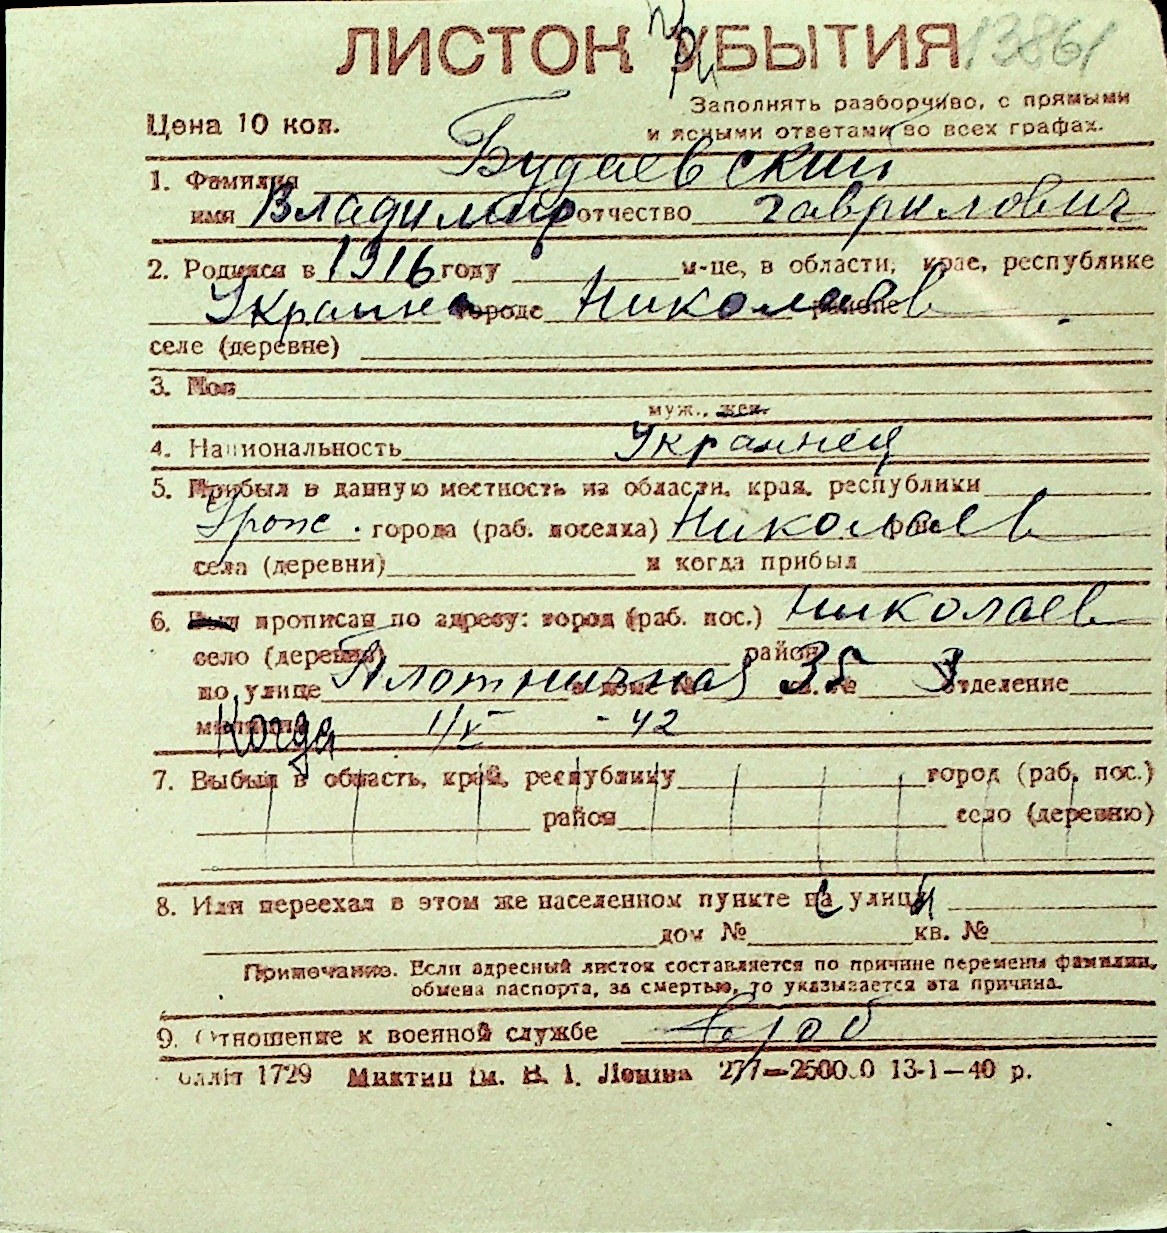 ЛИСТОК При УБЫТИЯ 13861
Заполнять разборчиво, с прямыми
Цена 10 коп. и ясными ответами во всех графах.
1. Фамилия Будаевский
имя Владимир отчество гаврилович
2. Родился в 1916 году м-це, в области, крае, республике
Украина городе Николаев районе
селе (деревне)
3. Пол
муж., жен.
4. Национальность Украинец
5. Прибыл в данную местность из области, края, республики
города (раб. поселка) Николаев
села (деревни) и когда прибыл
6. Был прописан по адресу: город (раб. пос.) Николаев
село (деревня) район
по улице Плотничная 35 3 отделение
милиции Когда 1/V - 42
7. Выбыл в область, край, республику город (раб. пос.)
район село (деревню)
8. Или переехал в этом же населенном пункте с улици
дом № кв. №
Примечание. Если адресный листок составляется по причине перемены фамилии,
обмена паспорта, за смертью, то указывается эта причина.
9. Отношение к военной службе
1729 13-1—40 р.